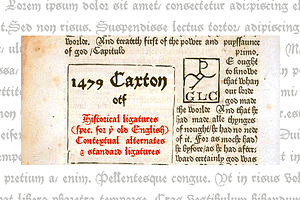 Lorem ipsum dolor sit amet, consectetur adipiscing
Sed non risus. Suspendisse lectus tortor, adipiscing
worlde. And treateth first of the power and puyssaunce
of god / Capitulo primo.
1479 Caxton
otf
Historical ligatures
(spec. for ẏ old English)
Contextual alternates
& standard ligatures
GLC
E ought
to knowe
that whan
our lord
god made
the worlde And that he
had made alle thynges
of nought / he had no nede
of it. For as moche had
he byfore / as he after
ward certainly god was
pretium a, enim. Pellentesque congue. Ut in risus v
at libero pharetra tempor. Cras vestibulum bibendum